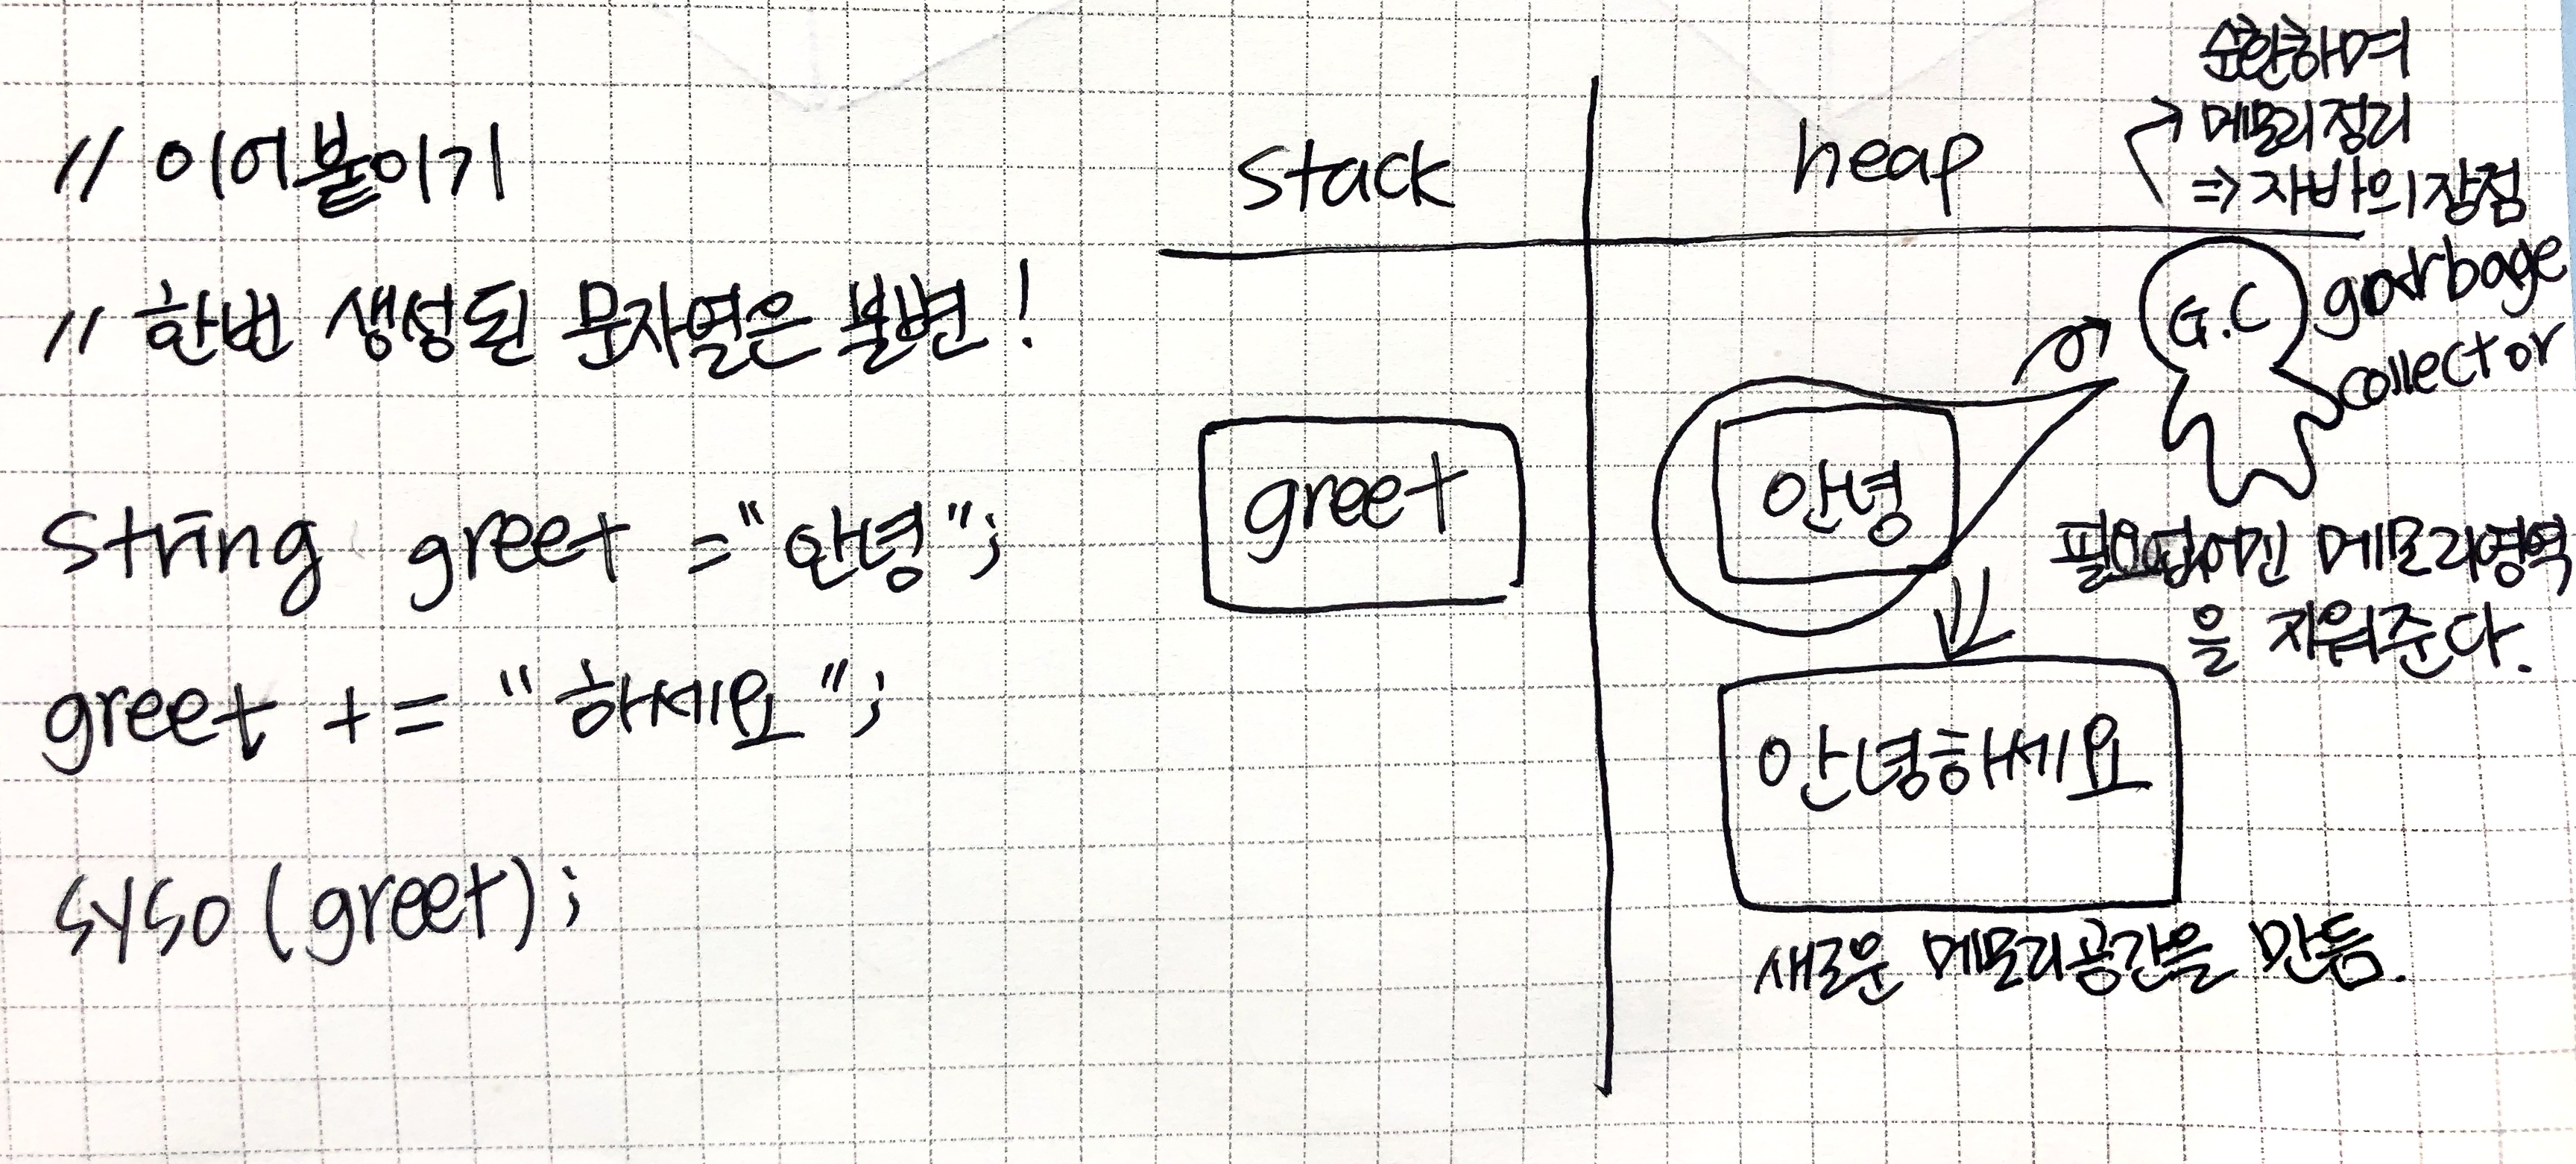 // 이어붙이기
// 한번 생성된 문자열은 불변!
String greet = "안녕";
greet += "하세요";
syso(greet);
stack
heap
순환하며
메모리정리
⇒ 자바의 장점
G.C
garbage
collector
greet
안녕
필요없어진 메모리영역
을 지워준다.
안녕하세요
새로운 메모리공간을 만듬.